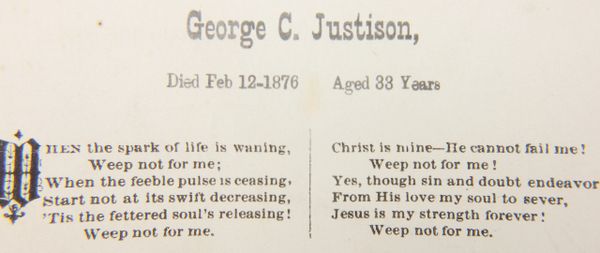 George C. Justison,
Died Feb 12-1876 Aged 33 Years
WHEN the spark of life is waning,
Weep not for me;
When the feeble pulse is ceasing,
Start not at its swift decreasing,
'Tis the fettered soul's releasing!
Weep not for me.
Christ is mine—He cannot fail me!
Weep not for me!
Yes, though sin and doubt endeavor
From His love my soul to sever,
Jesus is my strength forever!
Weep not for me.